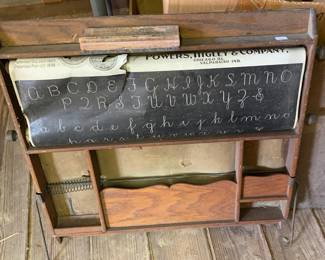 POWERS, HIGLEY & COMPANY.
CHICAGO, ILL.
VALPARAISO IND.
A B C D E F G H I J K L M N O
P Q R S T U V W X Y Z &
a b c d e f g h i j k l m n o